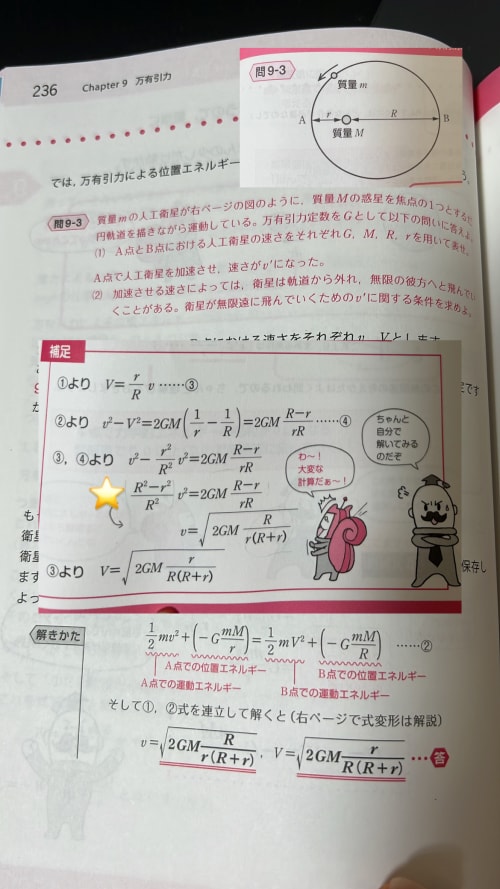 236 Chapter 9 万有引力
問9-3
質量m
A
r
R
B
質量M
では,万有引力による位置エネルギー
る。
問9-3 質量mの人工衛星が右ページの図のように,質量Mの惑星を焦点の1つとする
円軌道を描きながら運動している。万有引力定数をGとして以下の問いに答えよ
(1) A点とB点における人工衛星の速さをそれぞれG,M,R,rを用いて表せ。
A点で人工衛星を加速させ,速さがv'になった。
(2) 加速させる速さによっては,衛星は軌道から外れ,無限の彼方へと飛んでい
くことがある。衛星が無限遠に飛んでいくためのv'に関する条件を求めよ。
における速さをそれぞれv,Vとします
補足
①より V=r/R v ……③
②より v²-V²=2GM(1/r-1/R)=2GM (R-r)/rR ……④
③,④より v²-r²/R² v²=2GM (R-r)/rR
(R²-r²)/R² v²=2GM (R-r)/rR
v=√(2GM R/r(R+r))
③より V=√(2GM r/R(R+r))
わ〜!
大変な
計算だぁ〜!
ちゃんと
自分で
解いてみる
のだぞ
です
も
衛
衛星
ます
よっ
保存し
解きかた
1/2 mv²+(-G mM/r)=1/2 mV²+(-G mM/R) ……②
A点での位置エネルギー
B点での位置エネルギー
A点での運動エネルギー
B点での運動エネルギー
そして①,②式を連立して解くと(右ページで式変形は解説)
v=√(2GM R/r(R+r)), V=√(2GM r/R(R+r)) …答